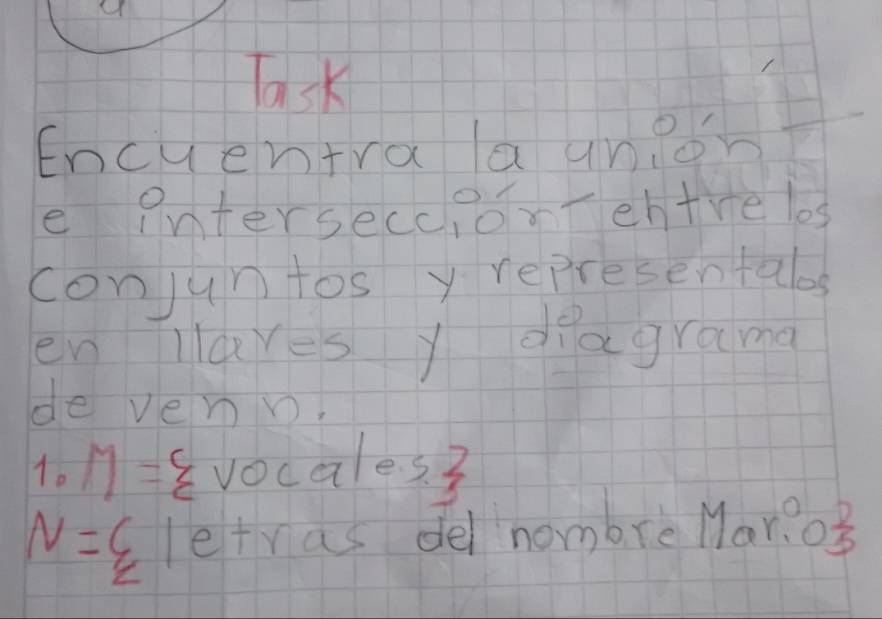 Task
Encuentra la unión
e intersección entre los
conjuntos y representalos
en llaves y diagrama
de venn.
1. M = {vocales.}
N = {letras del nombre Mario}